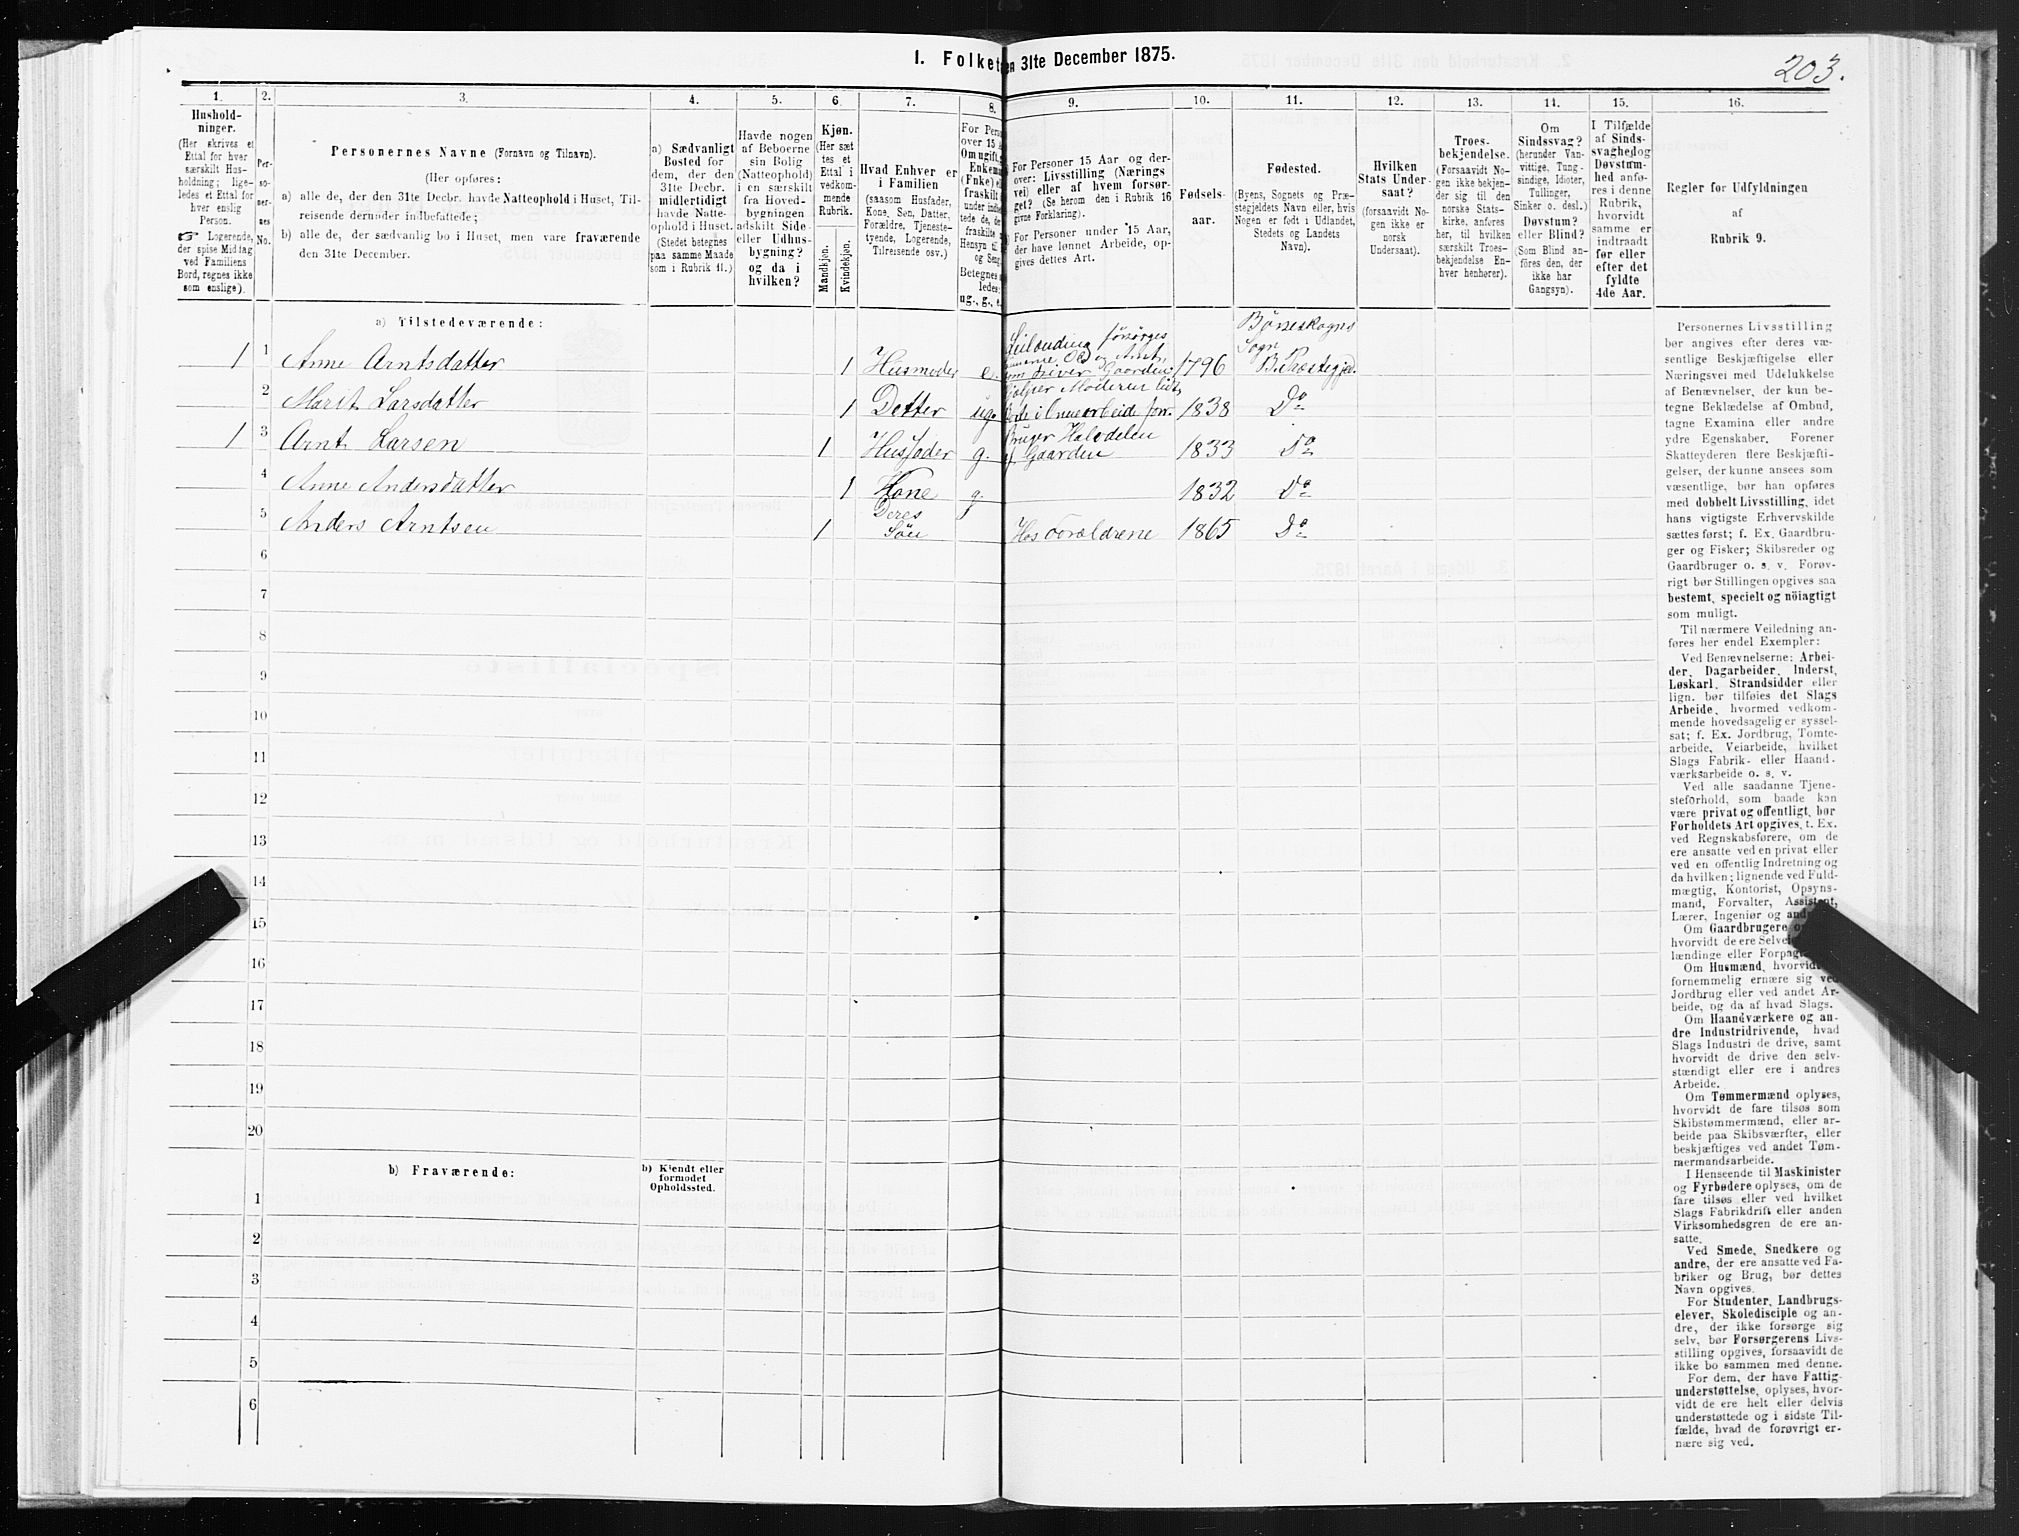 203.
1. Folket en 31te December 1875.
1. 2. 3. 4. 5. 6. 7. 8. 9. 10. 11. 12. 13. 14. 15. 16.
Hushold-
ninger.
(Her skrives et
Ettal for hver
særskilt Hus-
holdning; lige-
ledes et Ettal for
hver enslig
Person.
☞ Logerende,
der spise Middag
ved Familiens
Bord, regnes ikke
som enslige).
Per-
so-
ner-
nes
No.
Personernes Navne (Fornavn og Tilnavn).
(Her opføres:
a) alle de, der den 31te Decbr. havde Natteophold i Huset, Til-
reisende derunder indbefattede;
b) alle de, der sædvanlig bo i Huset, men vare fraværende
den 31te December.
a) Sædvanligt
Bosted for
dem, der den
31te Decbr.
midlertidigt
havde Natte-
ophold i Huset.
(Stedet betegnes
paa samme Maade
som i Rubrik 11.)
Havde nogen
af Beboerne
sin Bolig
(Natteophold)
i en særskilt
fra Hoved-
bygningen
adskilt Side-
eller Udhus-
bygning?
og da i
hvilken?
Kjøn.
(Her sæt
tes et
Ettal i
vedkom-
mende
Rubrik.
Mandkjøn.
Kvindekjøn.
Hvad Enhver er
i Familien
(saasom Husfader,
Kone, Søn, Datter,
Forældre, Tjeneste-
tyende, Logerende,
Tilreisende osv.)
For Perso
over 15 A
Om ugift,
Enkema
(Fnke) el
fraskilt
under indt
tede de, de
fraskilte
Hensyn til
og Seng
Betegnes s
ledes:
ug., g., e.
For Personer 15 Aar og der-
over: Livsstilling (Nærings
vei) eller af hvem forsør-
get? (Se herom den i Rubrik 16
givne Forklaring).
For Personer under 15 Aar,
der have lønnet Arbeide, op-
gives dettes Art.
Fødsels-
aar.
Fødested.
(Byens, Sognets og Præ-
stegjeldets Navn eller, hvis
Nogen er født i Udlandet,
Stedets og Landets
Navn).
Hvilken
Stats Under-
saat?
(forsaavidt No-
gen ikke er
norsk
Undersaat).
Troes-
bekjendelse.
(Forsaavidt No-
gen ikke bekjen-
der sig til den
norske Stats-
kirke, anføres
her, til hvilken
særskilt Troes-
bekjendelse En-
hver henhører).
Om
Sindssvag?
(herunder Van-
vittige, Tung-
sindige, Idioter,
Tullinger,
Sinker o. desl.)
Døvstum?
eller Blind?
(Som Blind an-
føres den, der
ikke har
Gangsyn).
I Tilfælde
af Sinds-
svaghed og
Døvstum-
hed anfø-
res i denne
Rubrik,
hvorvidt
samme er
indtraadt
før eller
efter det
fyldte
4de Aar.
Regler for Udfyldningen
af
Rubrik 9.
a) Tilstedeværende:
1 1 Anne Arntsdatter 1 Husmoder e. forsørges Gaarden 1796 Bøneskogns Sogn B. Præstegjed.
2 Marit Larsdatter 1 Detter ug. Moderen 1838 Do
1 3 Arnt Larsen 1 Husfader g. Bruger Halvdelen af Gaarden 1833 Do
4 Anne Andersdatter 1 Kone g. 1832 Do
5 Anders Arntsen 1 Deres Søn Hos Forældrene 1865 Do
6
7
8
9
10
11
12
13
14
15
16
17
18
19
20
b) Fraværende: b) Kjendt eller
formodet
Opholdssted.
1
2
3
4
5
6
Personernes Livsstilling
bør angives efter deres væ-
sentlige Beskjæftigelse eller
Næringsvei med Udelukkelse
af Benævnelser, der kun be-
tegne Beklædelse af Ombud,
tagne Examina eller andre
ydre Egenskaber. Forener
Skatteyderen flere Beskjæfti-
gelser, der kunne ansees som
væsentlige, bør han opføres
med dobbelt Livsstilling, idet
hans vigtigste Erhvervskilde
sættes først; f. Ex. Gaardbru-
ger og Fisker; Skibsreder og
Gaardbruger o. s. v. Forøv-
rigt bør Stillingen opgives saa
bestemt, specielt og nöiagtigt
som muligt.
Til nærmere Veiledning an-
føres her endel Exempler:
Ved Benævnelserne: Arbei-
der, Dagarbeider, Inderst,
Løskarl, Strandsidder eller
lign. bør tilføies det Slags
Arbeide, hvormed vedkom-
mende hovedsagelig er syssel-
sat; f. Ex. Jordbrug, Tomte-
arbeide, Veiarbeide, hvilket
Slags Fabrik- eller Haand-
værksarbeide o. s. v.
Ved alle saadanne Tjene-
steforhold, som baade kan
være privat og offentligt, bør
Forholdets Art opgives, t. Ex.
ved Regnskabsførere, om de
ere ansatte ved en privat eller
ved en offentlig Indretning og
da hvilken; lignende ved Fuld-
mægtig, Kontorist, Opsyns-
mand, Forvalter, Assistent,
Lærer, Ingeniør og and
Om Gaardbrugere o
hvorvidt de ere Selve
lændinge eller Forpag
Om Husmænd, hvorvidt
fornemmelig ernære sig ved
Jordbrug eller ved andet Ar-
beide, og da af hvad Slags.
Om Haandværkere og an-
dre Industridrivende, hvad
Slags Industri de drive, samt
hvorvidt de drive den selv-
stændigt eller ere i andres
Arbeide.
Om Tømmermænd oplyses,
hvorvidt de fare tilsøs som
Skibstømmermænd, eller ar-
beide paa Skibsværfter, eller
beskjæftiges ved andet Tøm-
mermandsarbeide.
I Henseende til Maskinister
og Fyrbødere oplyses, om de
fare tilsøs eller ved hvilket
Slags Fabrikdrift eller anden
Virksomhedsgren de ere an-
satte.
Ved Smede, Snedkere og
andre, der ere ansatte ved Fa-
briker og Brug, bør dettes
Navn opgives.
For Studenter, Landbrugs-
elever, Skoledisciple og an-
dre, der ikke forsørge sig
selv, bør Forsørgerens Livs-
stilling opgives, forsaavidt de
ikke bo sammen med denne.
For dem, der have Fattig-
understøttelse, oplyses, hvor-
vidt de ere helt eller delvis
understøttede og i sidste Til-
fælde, hvad de forøvrigt er-
nære sig ved.